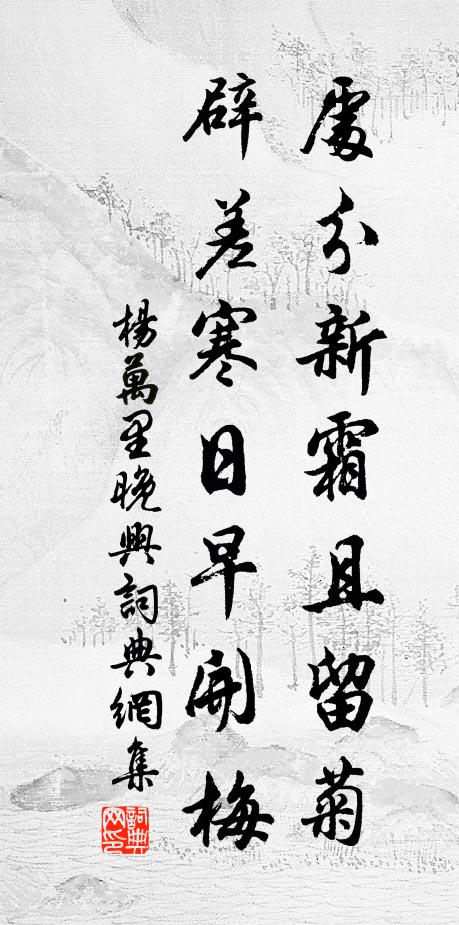 處分新霜且留菊
辟差寒日早開梅
楊萬里晚興詞典網集
詞典網印